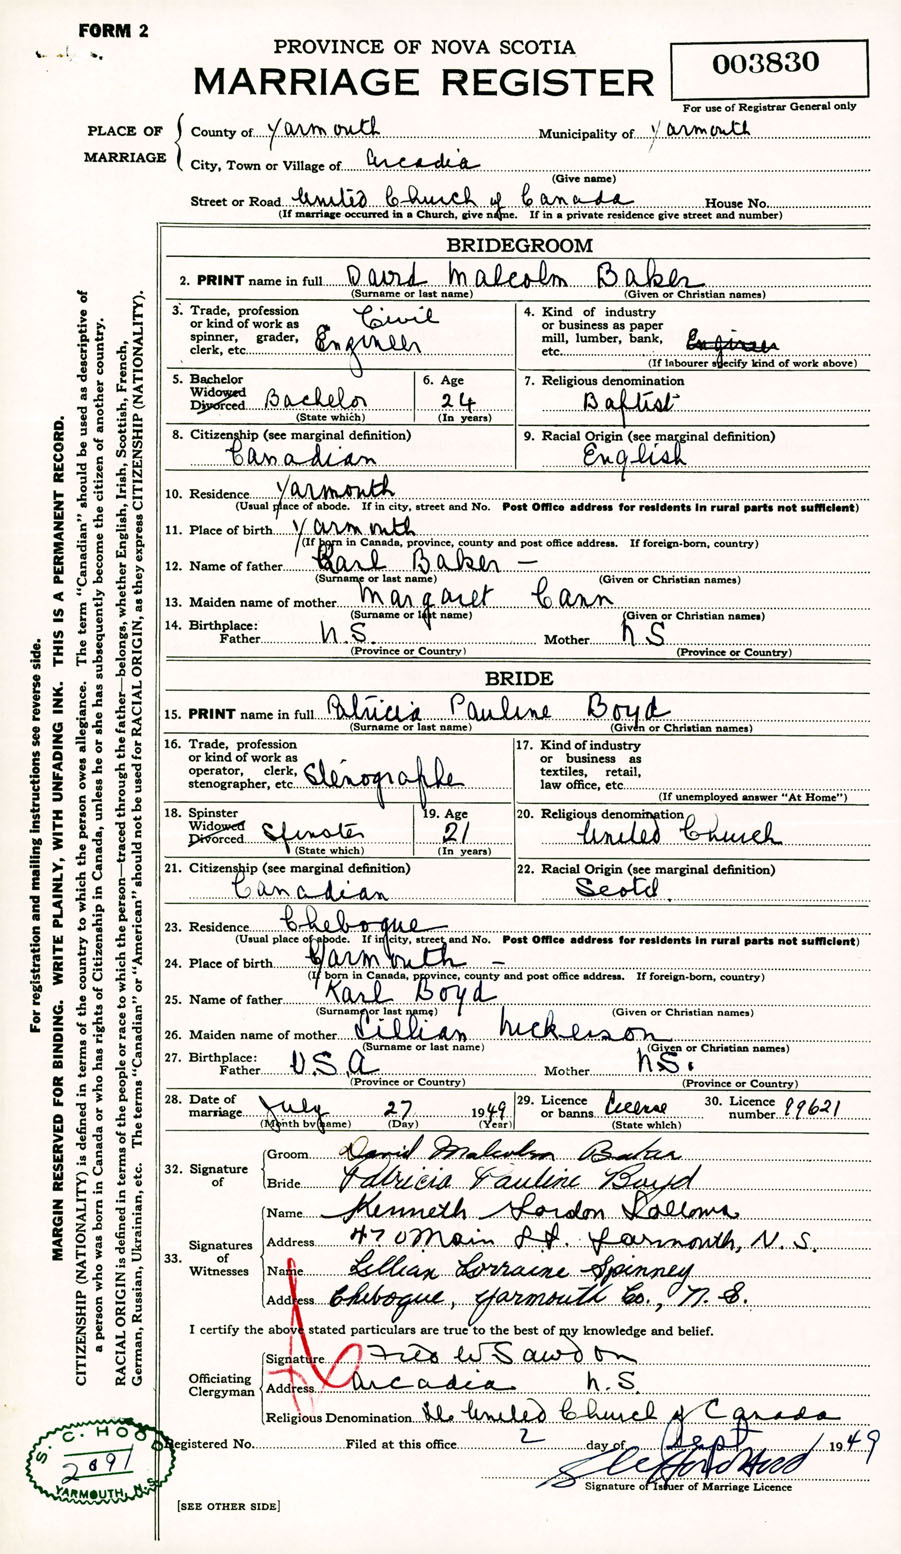 FORM 2
PROVINCE OF NOVA SCOTIA
MARRIAGE REGISTER
003830
For use of Registrar General only
PLACE OF MARRIAGE
County of Yarmouth Municipality of Yarmouth
City, Town or Village of Arcadia
(Give name)
Street or Road United Church of Canada House No.
(If marriage occurred in a Church, give name. If in a private residence give street and number)
BRIDEGROOM
2. PRINT name in full David Malcolm Baker
(Surname or last name) (Given or Christian names)
3. Trade, profession or kind of work as spinner, grader, clerk, etc. Civil Engineer
4. Kind of industry or business as paper mill, lumber, bank, etc. Engineer
(If labourer specify kind of work above)
5. Bachelor Widowed Divorced Bachelor
(State which)
6. Age 24
(In years)
7. Religious denomination
Baptist
8. Citizenship (see marginal definition)
Canadian
9. Racial Origin (see marginal definition)
English
10. Residence Yarmouth
(Usual place of abode. If in city, street and No. Post Office address for residents in rural parts not sufficient)
11. Place of birth Yarmouth
(If born in Canada, province, county and post office address. If foreign-born, country)
12. Name of father Karl Baker –
(Surname or last name) (Given or Christian names)
13. Maiden name of mother Margaret Cann
(Surname or last name) (Given or Christian names)
14. Birthplace: Father N.S. Mother N S
(Province or Country) (Province or Country)
BRIDE
15. PRINT name in full Patricia Pauline Boyd
(Surname or last name) (Given or Christian names)
16. Trade, profession or kind of work as operator, clerk, stenographer, etc. Stenographe
17. Kind of industry or business as textiles, retail, law office, etc.
(If unemployed answer "At Home")
18. Spinster Widowed Divorced Spinster
(State which)
19. Age 21
(In years)
20. Religious denomination
United Church
21. Citizenship (see marginal definition)
Canadian
22. Racial Origin (see marginal definition)
Scotch
23. Residence Chebogue
(Usual place of abode. If in city, street and No. Post Office address for residents in rural parts not sufficient)
24. Place of birth Yarmouth –
(If born in Canada, province, county and post office address. If foreign-born, country)
25. Name of father Karl Boyd
(Surname or last name) (Given or Christian names)
26. Maiden name of mother Lillian Nickerson
(Surname or last name) (Given or Christian names)
27. Birthplace: Father U.S.A Mother N.S.
(Province or Country) (Province or Country)
28. Date of marriage July 27 1949
(Month by name) (Day) (Year)
29. Licence or banns License
(State which)
30. Licence number 99621
32. Signature of
Groom David Malcolm Baker
Bride Patricia Pauline Boyd
33. Signatures of Witnesses
Name Kenneth Gordon
Address 470 Main St. Yarmouth, N.S.
Name Lillian Lorraine Spinney
Address Chebogue, Yarmouth Co., N.S.
I certify the above stated particulars are true to the best of my knowledge and belief.
Officiating Clergyman
Signature Fred W Sawdon
Address Arcadia N.S.
Religious Denomination The United Church of Canada
Registered No. Filed at this office 2 day of Sept 1949
Signature of Issuer of Marriage Licence
[SEE OTHER SIDE]
S. C. HOOD
2091
YARMOUTH, N.S.
For registration and mailing instructions see reverse side.
MARGIN RESERVED FOR BINDING. WRITE PLAINLY, WITH UNFADING INK. THIS IS A PERMANENT RECORD.
CITIZENSHIP (NATIONALITY) is defined in terms of the country to which the person owes allegiance. The term "Canadian" should be used as descriptive of
a person who was born in Canada or who has rights of Citizenship in Canada, unless he or she has subsequently become the citizen of another country.
RACIAL ORIGIN is defined in terms of the people or race to which the person—traced through the father—belongs, whether English, Irish, Scottish, French,
German, Russian, Ukrainian, etc. The terms "Canadian" or "American" should not be used for RACIAL ORIGIN, as they express CITIZENSHIP (NATIONALITY).